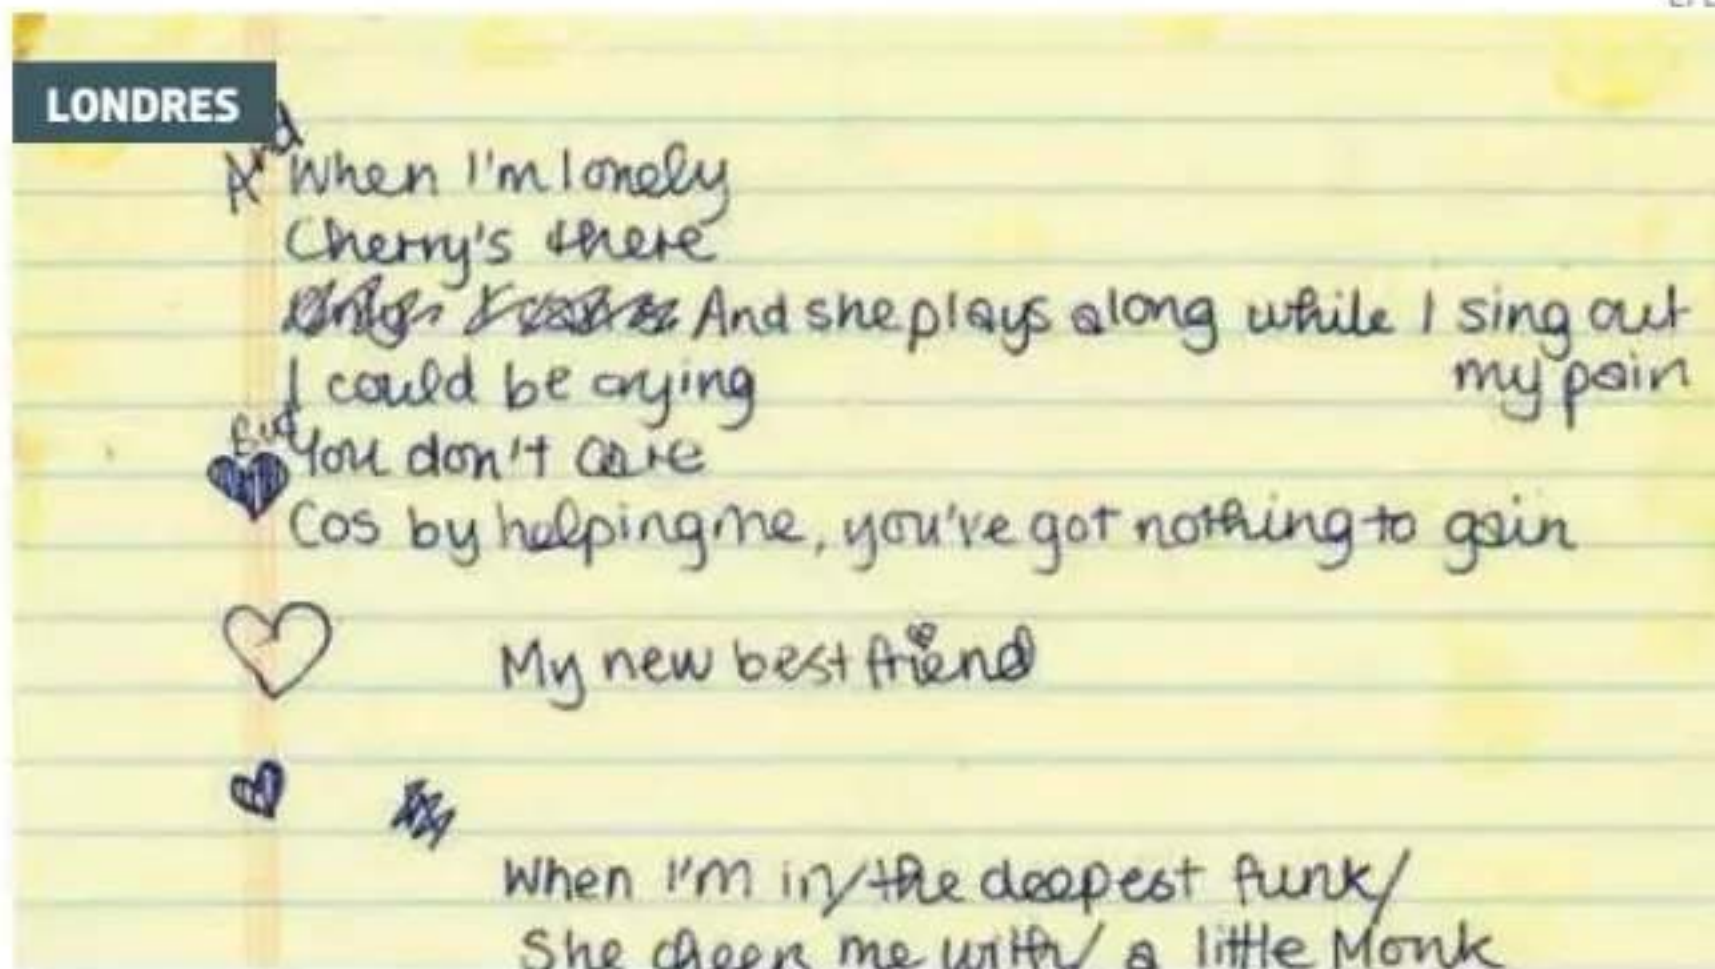 LONDRES
And When I'm lonely
Cherry's there
And she plays along while I sing out
my pain
I could be crying
But You don't care
Cos by helping me, you've got nothing to gain
My new best friend
When I'm in/the deepest funk/
She cheers me with/ a little Monk